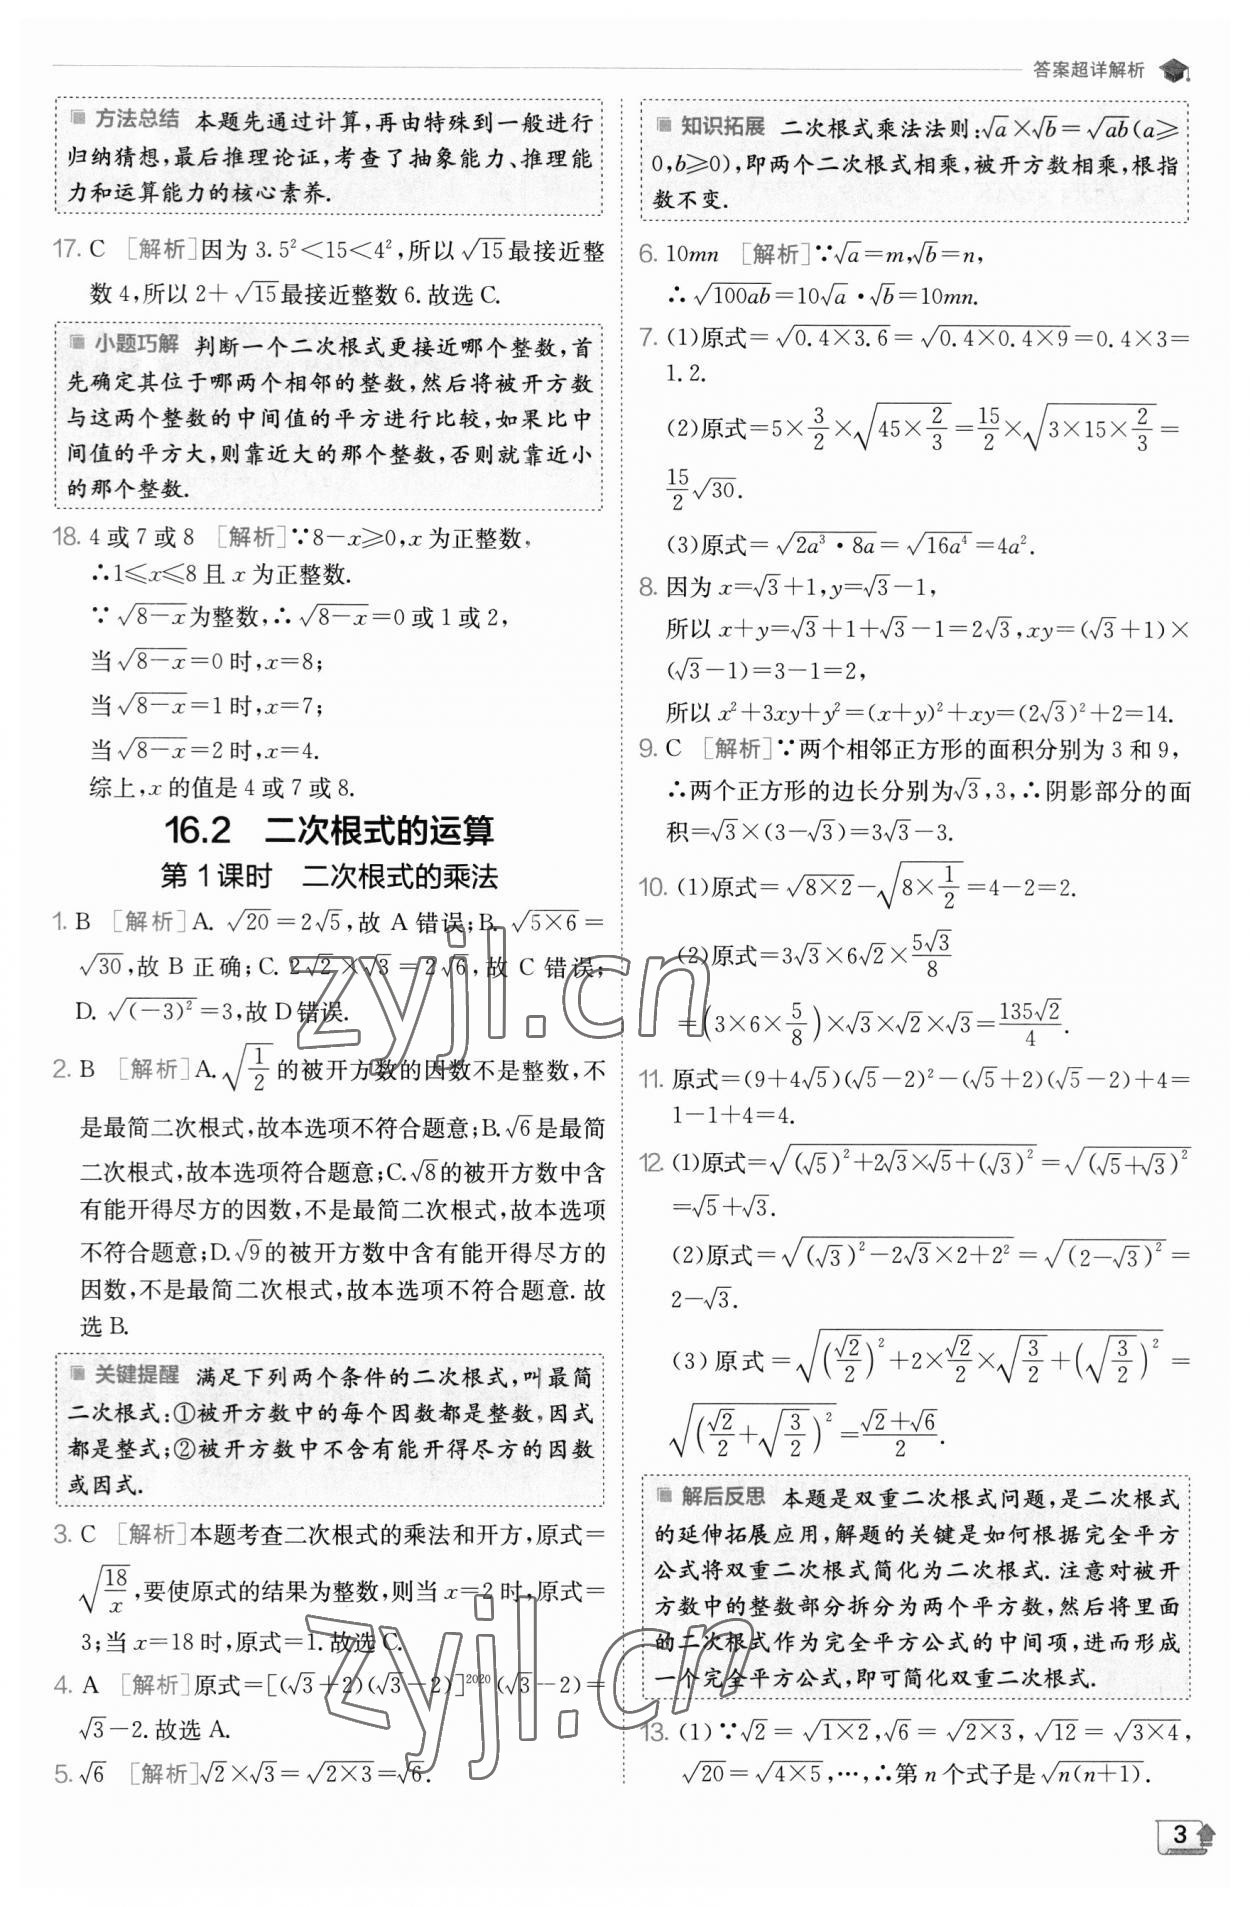 答案超详解析
方法总结 本题先通过计算,再由特殊到一般进行
归纳猜想,最后推理论证,考查了抽象能力、推理能
力和运算能力的核心素养.
17. C [解析]因为 3.5²<15<4²,所以 √15最接近整
数 4,所以 2+√15最接近整数 6.故选 C.
小题巧解 判断一个二次根式更接近哪个整数,首
先确定其位于哪两个相邻的整数,然后将被开方数
与这两个整数的中间值的平方进行比较,如果比中
间值的平方大,则靠近大的那个整数,否则就靠近小
的那个整数.
18. 4 或 7 或 8 [解析]∵8-x≥0,x 为正整数,
∴1≤x≤8 且 x 为正整数.
∵√(8-x)为整数,∴√(8-x)=0 或 1 或 2,
当√(8-x)=0 时,x=8;
当√(8-x)=1 时,x=7;
当√(8-x)=2 时,x=4.
综上,x 的值是 4 或 7 或 8.
16.2 二次根式的运算
第 1 课时 二次根式的乘法
1. B [解析]A. √20=2√5,故 A 错误;B. √(5×6)=
√30,故 B 正确;C. 2√2×√3=2√6,故 C 错误;
D. √((-3)²)=3,故 D 错误.
2. B [解析]A. √(1/2)的被开方数的因数不是整数,不
是最简二次根式,故本选项不符合题意;B.√6是最简
二次根式,故本选项符合题意;C.√8的被开方数中含
有能开得尽方的因数,不是最简二次根式,故本选项
不符合题意;D.√9的被开方数中含有能开得尽方的
因数,不是最简二次根式,故本选项不符合题意.故
选 B.
关键提醒 满足下列两个条件的二次根式,叫最简
二次根式:①被开方数中的每个因数都是整数,因式
都是整式;②被开方数中不含有能开得尽方的因数
或因式.
3. C [解析]本题考查二次根式的乘法和开方,原式=
√(18/x),要使原式的结果为整数,则当 x=2 时,原式=
3;当 x=18 时,原式=1.故选 C.
4. A [解析]原式=[(√3+2)(√3-2)]²⁰²⁰(√3-2)=
√3-2.故选 A.
5. √6 [解析]√2×√3=√(2×3)=√6.
知识拓展 二次根式乘法法则:√a×√b=√ab(a≥
0,b≥0),即两个二次根式相乘,被开方数相乘,根指
数不变.
6. 10mn [解析]∵√a=m,√b=n,
∴√(100ab)=10√a·√b=10mn.
7. (1)原式=√(0.4×3.6)=√(0.4×0.4×9)=0.4×3=
1.2.
(2)原式=5×3/2×√(45×2/3)=15/2×√(3×15×2/3)=
15/2√30.
(3)原式=√(2a³·8a)=√(16a⁴)=4a².
8. 因为 x=√3+1,y=√3-1,
所以 x+y=√3+1+√3-1=2√3,xy=(√3+1)×
(√3-1)=3-1=2,
所以 x²+3xy+y²=(x+y)²+xy=(2√3)²+2=14.
9. C [解析]∵两个相邻正方形的面积分别为 3 和 9,
∴两个正方形的边长分别为√3,3,∴阴影部分的面
积=√3×(3-√3)=3√3-3.
10. (1)原式=√(8×2)-√(8×1/2)=4-2=2.
(2)原式=3√3×6√2×5√3/8
=(3×6×5/8)×√3×√2×√3=135√2/4.
11. 原式=(9+4√5)(√5-2)²-(√5+2)(√5-2)+4=
1-1+4=4.
12. (1)原式=√((√5)²+2√3×√5+(√3)²)=√((√5+√3)²)
=√5+√3.
(2)原式=√((√3)²-2√3×2+2²)=√((2-√3)²)=
2-√3.
(3)原式=√((√2/2)²+2×√2/2×√(3/2)+(√(3/2))²)=
√((√2/2+√(3/2))²)=(√2+√6)/2.
解后反思 本题是双重二次根式问题,是二次根式
的延伸拓展应用,解题的关键是如何根据完全平方
公式将双重二次根式简化为二次根式.注意对被开
方数中的整数部分拆分为两个平方数,然后将里面
的二次根式作为完全平方公式的中间项,进而形成
一个完全平方公式,即可简化双重二次根式.
13. (1)∵√2=√(1×2),√6=√(2×3),√12=√(3×4),
√20=√(4×5),…,∴第 n 个式子是√(n(n+1)).
3
zyjl.cn
zyjl.cn